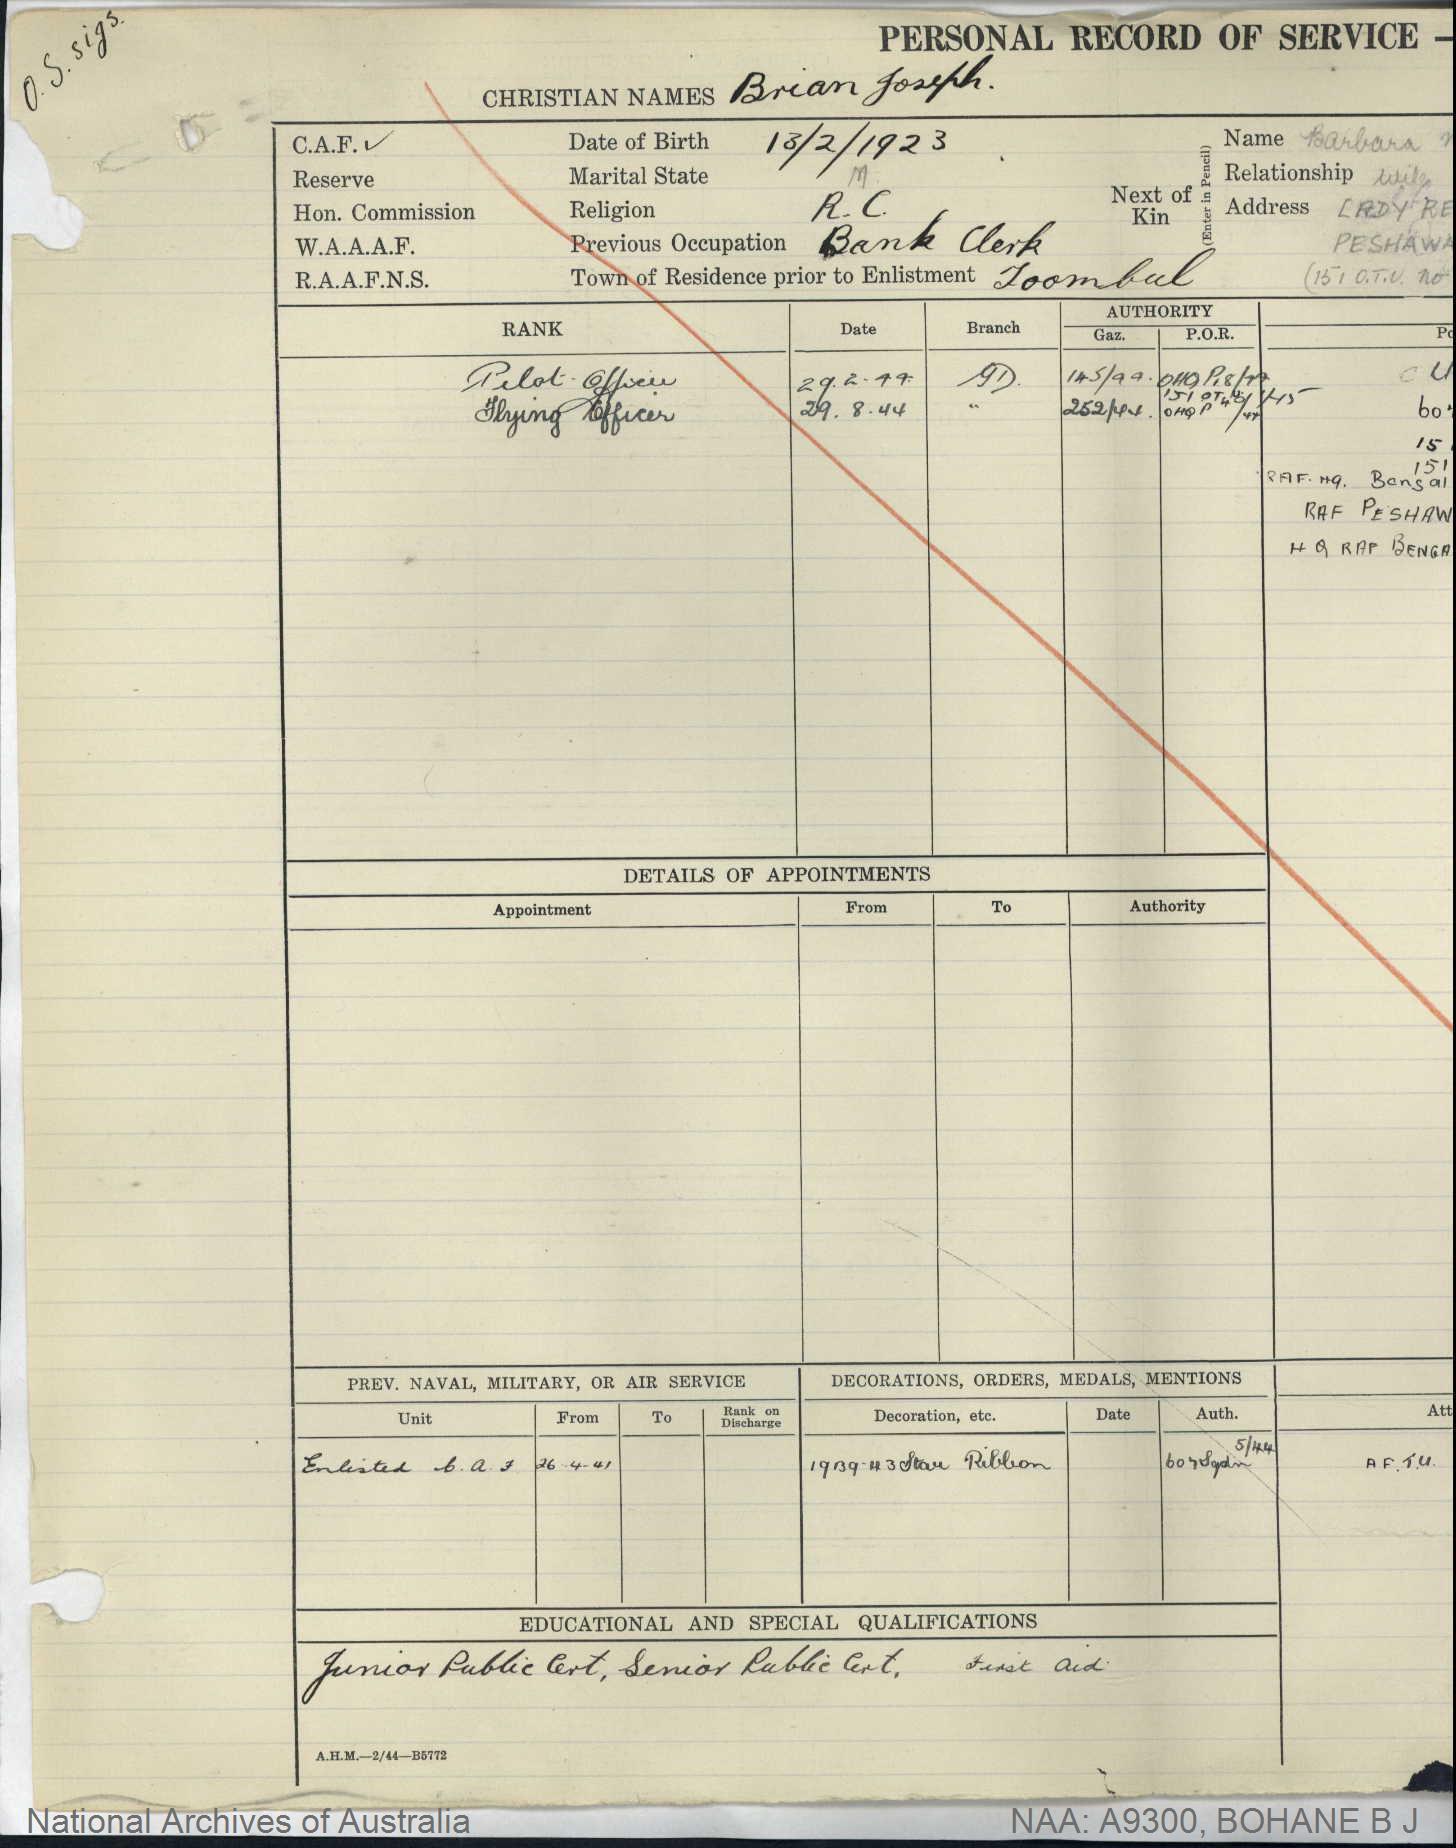 O.S. sigs.
PERSONAL RECORD OF SERVICE —
CHRISTIAN NAMES Brian Joseph.
C.A.F. ✓ Date of Birth 13/2/1923 Name Barbara
Reserve Marital State M. Relationship Wife
Hon. Commission Religion R.C. Next of Kin (Enter in Pencil) Address LADY RE
W.A.A.A.F. Previous Occupation Bank Clerk PESHAWA
R.A.A.F.N.S. Town of Residence prior to Enlistment Toombul (151 O.T.U. no
RANK Date Branch AUTHORITY
Gaz. P.O.R. Po
Pilot Officer 29.2.44 GD. 145/44. OHQ P18/44 U
Flying Officer 29.8.44 " 252/44. OHQ P /44 607
151
151
RAF. HQ. Bengal
RAF PESHAW
HQ RAF BENGA
DETAILS OF APPOINTMENTS
Appointment From To Authority
PREV. NAVAL, MILITARY, OR AIR SERVICE DECORATIONS, ORDERS, MEDALS, MENTIONS
Unit From To Rank on Discharge Decoration, etc. Date Auth. Att
Enlisted C.A.F 26.4.41 1939-43 Star Ribbon 607 Sqdn 5/44 A.F.T.U.
EDUCATIONAL AND SPECIAL QUALIFICATIONS
Junior Public Cert, Senior Public Cert, First Aid
A.H.M.—2/44—B5772
National Archives of Australia NAA: A9300, BOHANE B J